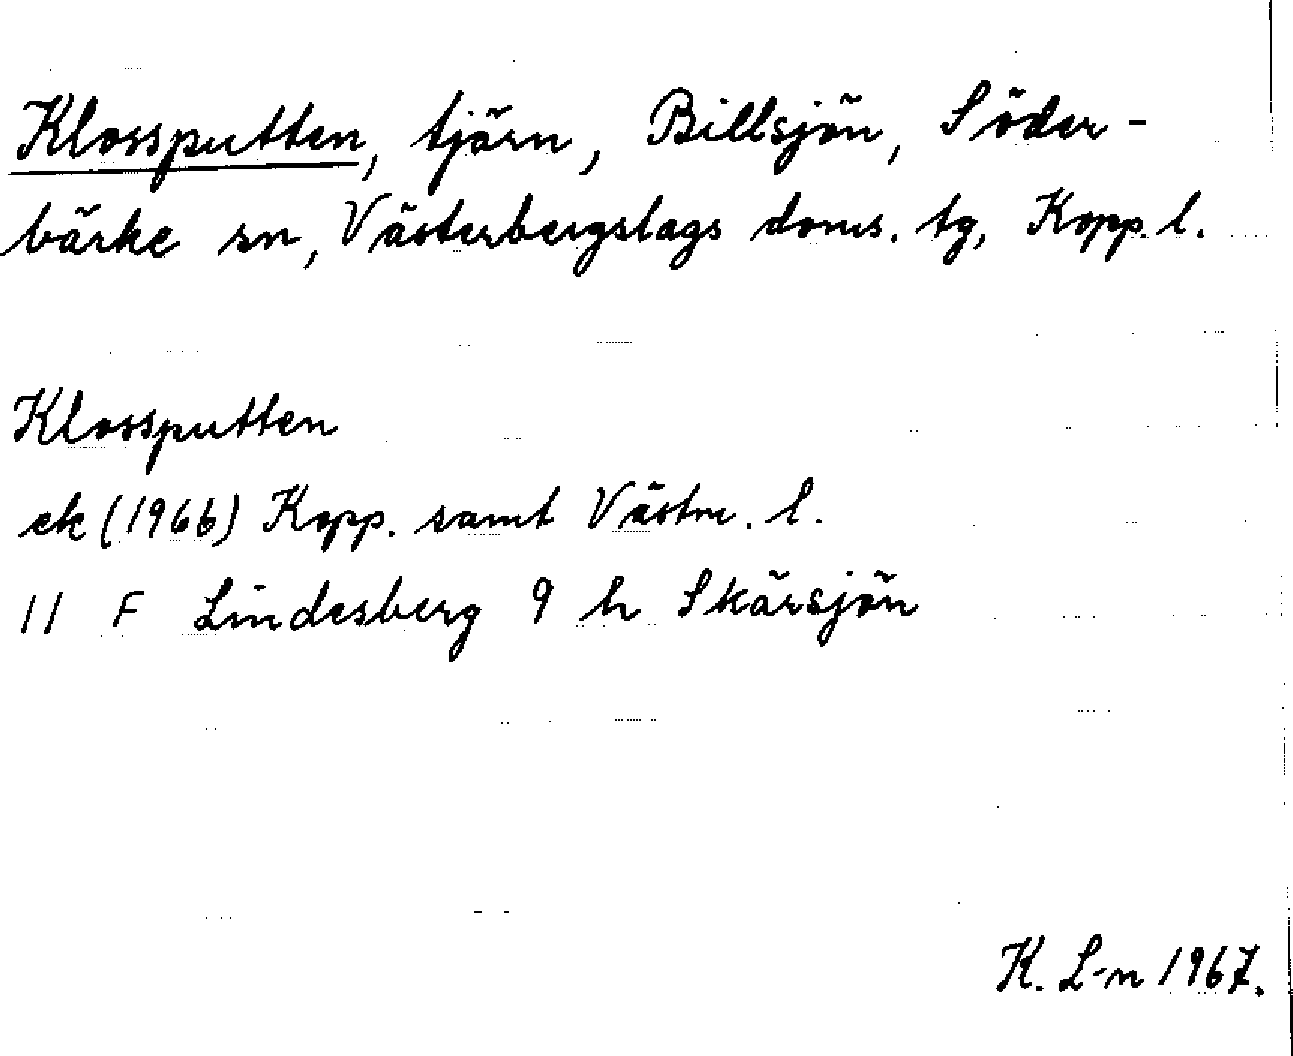 Klossputten, tjärn, Billsjön, Söder-
bärke sn, Västerbergslags doms. tg, Kopp. l.
Klossputten
ek (1966) Kopp. samt Västm. l.
11 F Lindesberg 9 h Skärsjön
K. L-n 1967.